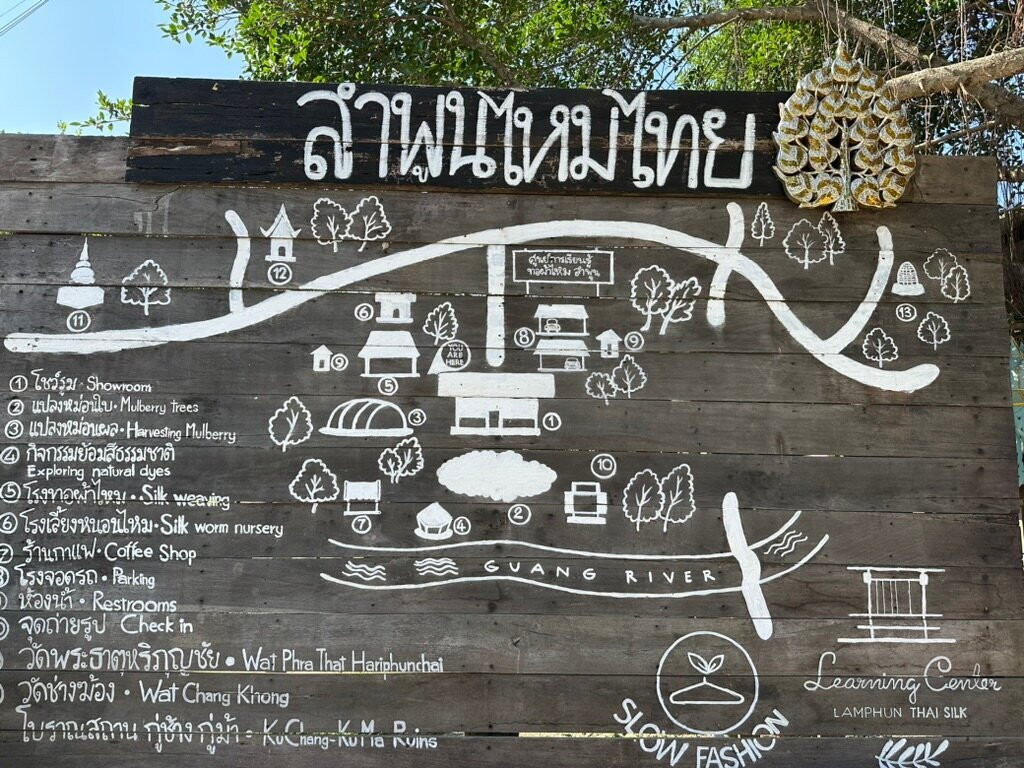 ลำพูนไหมไทย
ศูนย์การเรียนรู้
ทอผ้าไหม ลำพูน
12
11
13
6
8
9
9
YOU
ARE
HERE
5
3
1
10
7
4
2
GUANG RIVER
① โชว์รูม · Showroom
② แปลงหม่อนใบ · Mulberry trees
③ แปลงหม่อนผล · Harvesting Mulberry
④ กิจกรรมย้อมสีธรรมชาติ
Exploring natural dyes
⑤ โรงทอผ้าไหม · Silk weaving
⑥ โรงเลี้ยงหนอนไหม · Silk worm nursery
⑦ ร้านกาแฟ · Coffee Shop
โรงจอดรถ · Parking
ห้องน้ำ · Restrooms
จุดถ่ายรูป Check in
วัดพระธาตุหริภุญชัย · Wat Phra That Hariphunchai
วัดช่างฆ้อง · Wat Chang Khong
โบราณสถาน กู่ช้าง กู่ม้า = Ku Chang-Ku Ma Ruins
SLOW FASHION
Learning Center
LAMPHUN THAI SILK